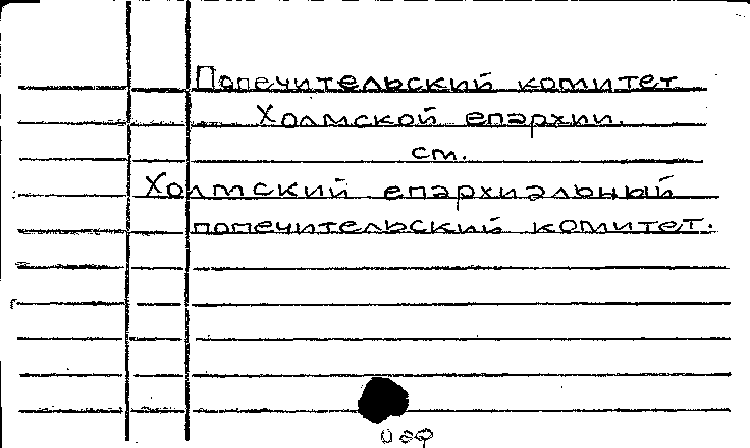 Попечительский комитет
Холмской епархии.
см.
Холмский епархиальный
попечительский комитет.